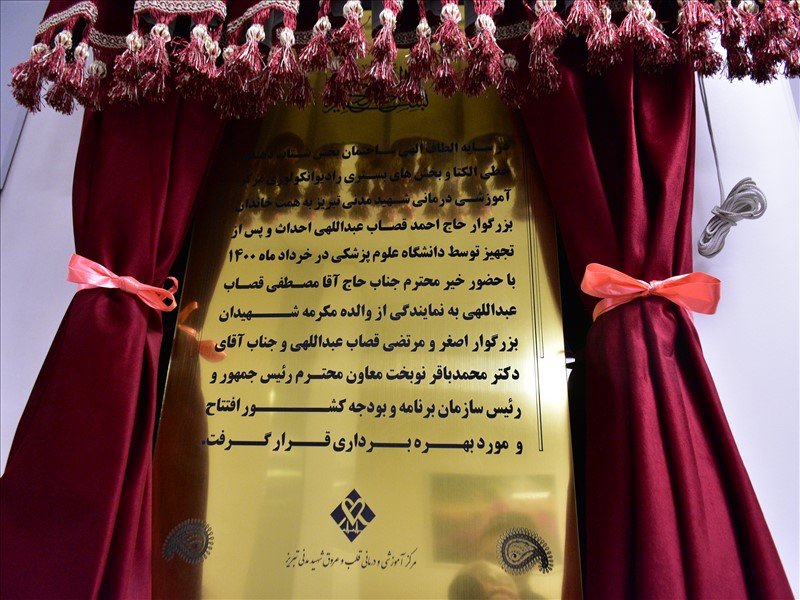 در سایه الطاف الهی ساختمان بخش شتاب دهنده
خطی الکتا و بخش های بستری رادیوانکولوژی مرکز
آموزشی درمانی شهید مدنی تبریز به همت خاندان
بزرگوار حاج احمد قصاب عبداللهی احداث و پس از
تجهیز توسط دانشگاه علوم پزشکی در خرداد ماه ۱۴۰۰
با حضور خیر محترم جناب حاج آقا مصطفی قصاب
عبداللهی به نمایندگی از والده مکرمه شهیدان
بزرگوار اصغر و مرتضی قصاب عبداللهی و جناب آقای
دکتر محمدباقر نوبخت معاون محترم رئیس جمهور و
رئیس سازمان برنامه و بودجه کشور افتتاح
و مورد بهره برداری قرار گرفت.
مرکز آموزشی و درمانی قلب و عروق شهید مدنی تبریز